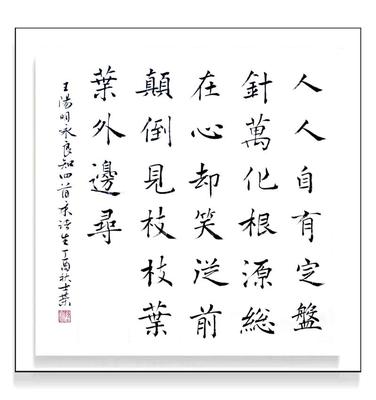 人人自有定盤
針萬化根源總
在心却笑從前
顛倒見枝枝葉
葉外邊尋
王陽明詠良知四首示諸生丁酉秋